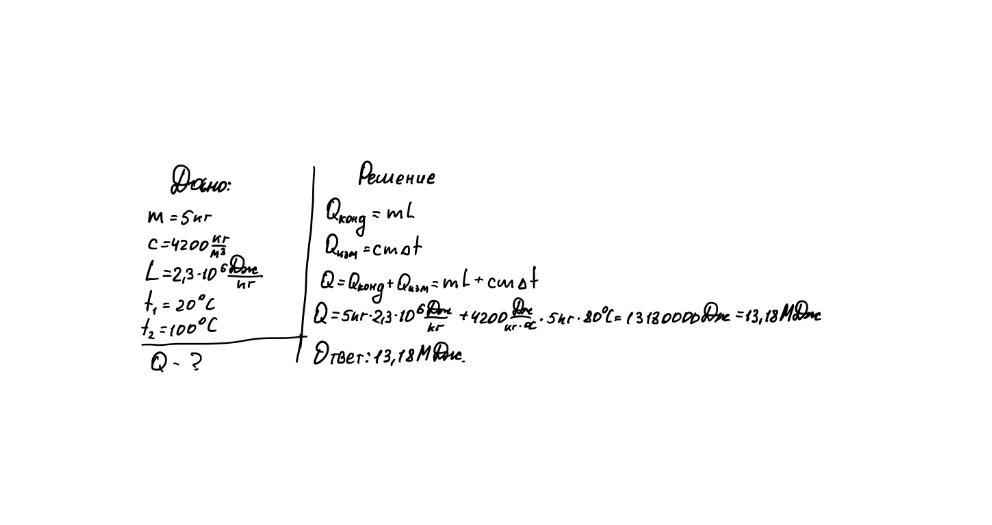 Дано:
m = 5 кг
c = 4200 кг/м³
L = 2,3·10⁶ Дж/кг
t₁ = 20°C
t₂ = 100°C
Q - ?
Решение
Qконд = mL
Qизм = cmΔt
Q = Qконд + Qизм = mL + cmΔt
Q = 5кг·2,3·10⁶ Дж/кг + 4200 Дж/кг·°C · 5кг · 80°C = 13180000 Дж = 13,18 МДж
Ответ: 13,18 МДж.